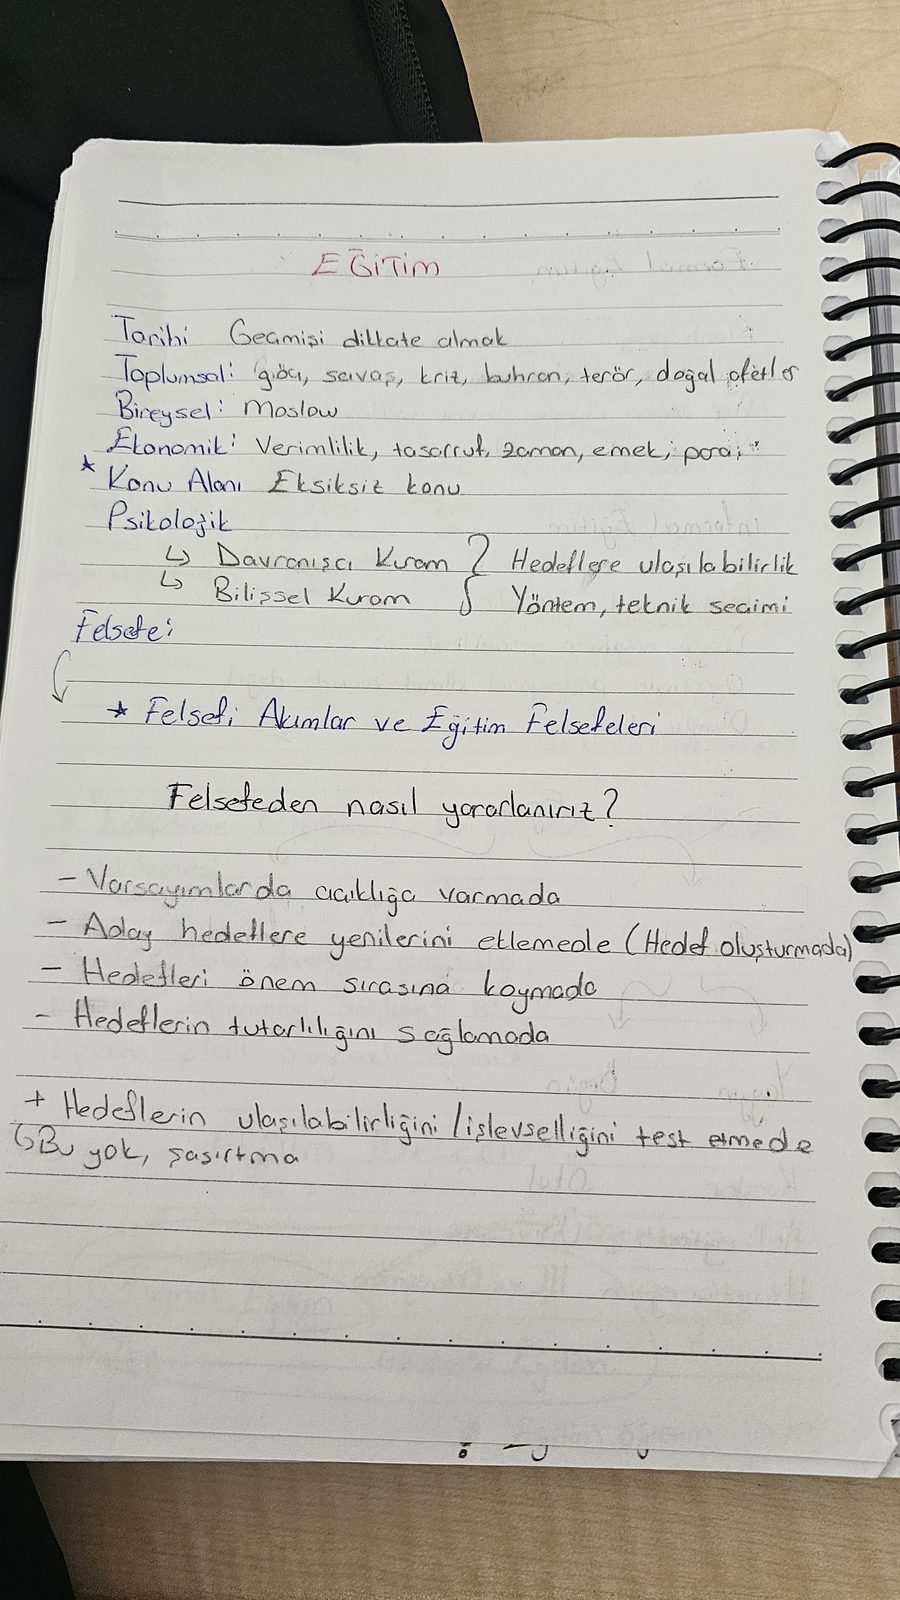 EĞİTİM
Tarihi Geçmişi dikkate almak
Toplumsal: göç, savaş, kriz, buhran, terör, doğal afetler
Bireysel: Maslow
Ekonomik: Verimlilik, tasarruf, zaman, emek, para,
* Konu Alanı Eksiksiz konu
Psikolojik
↳ Davranışçı Kuram } Hedeflere ulaşılabilirlik
↳ Bilişsel Kuram } Yöntem, teknik seçimi
Felsefe:
* Felsefi Akımlar ve Eğitim Felsefeleri
Felsefeden nasıl yararlanırız?
- Varsayımlarda açıklığa varmada
- Aday hedeflere yenilerini eklemede (Hedef oluşturmada)
- Hedefleri önem sırasına koymada
- Hedeflerin tutarlılığını sağlamada
+ Hedeflerin ulaşılabilirliğini / işlevselliğini test etmede
↳ Bu yok, şaşırtma